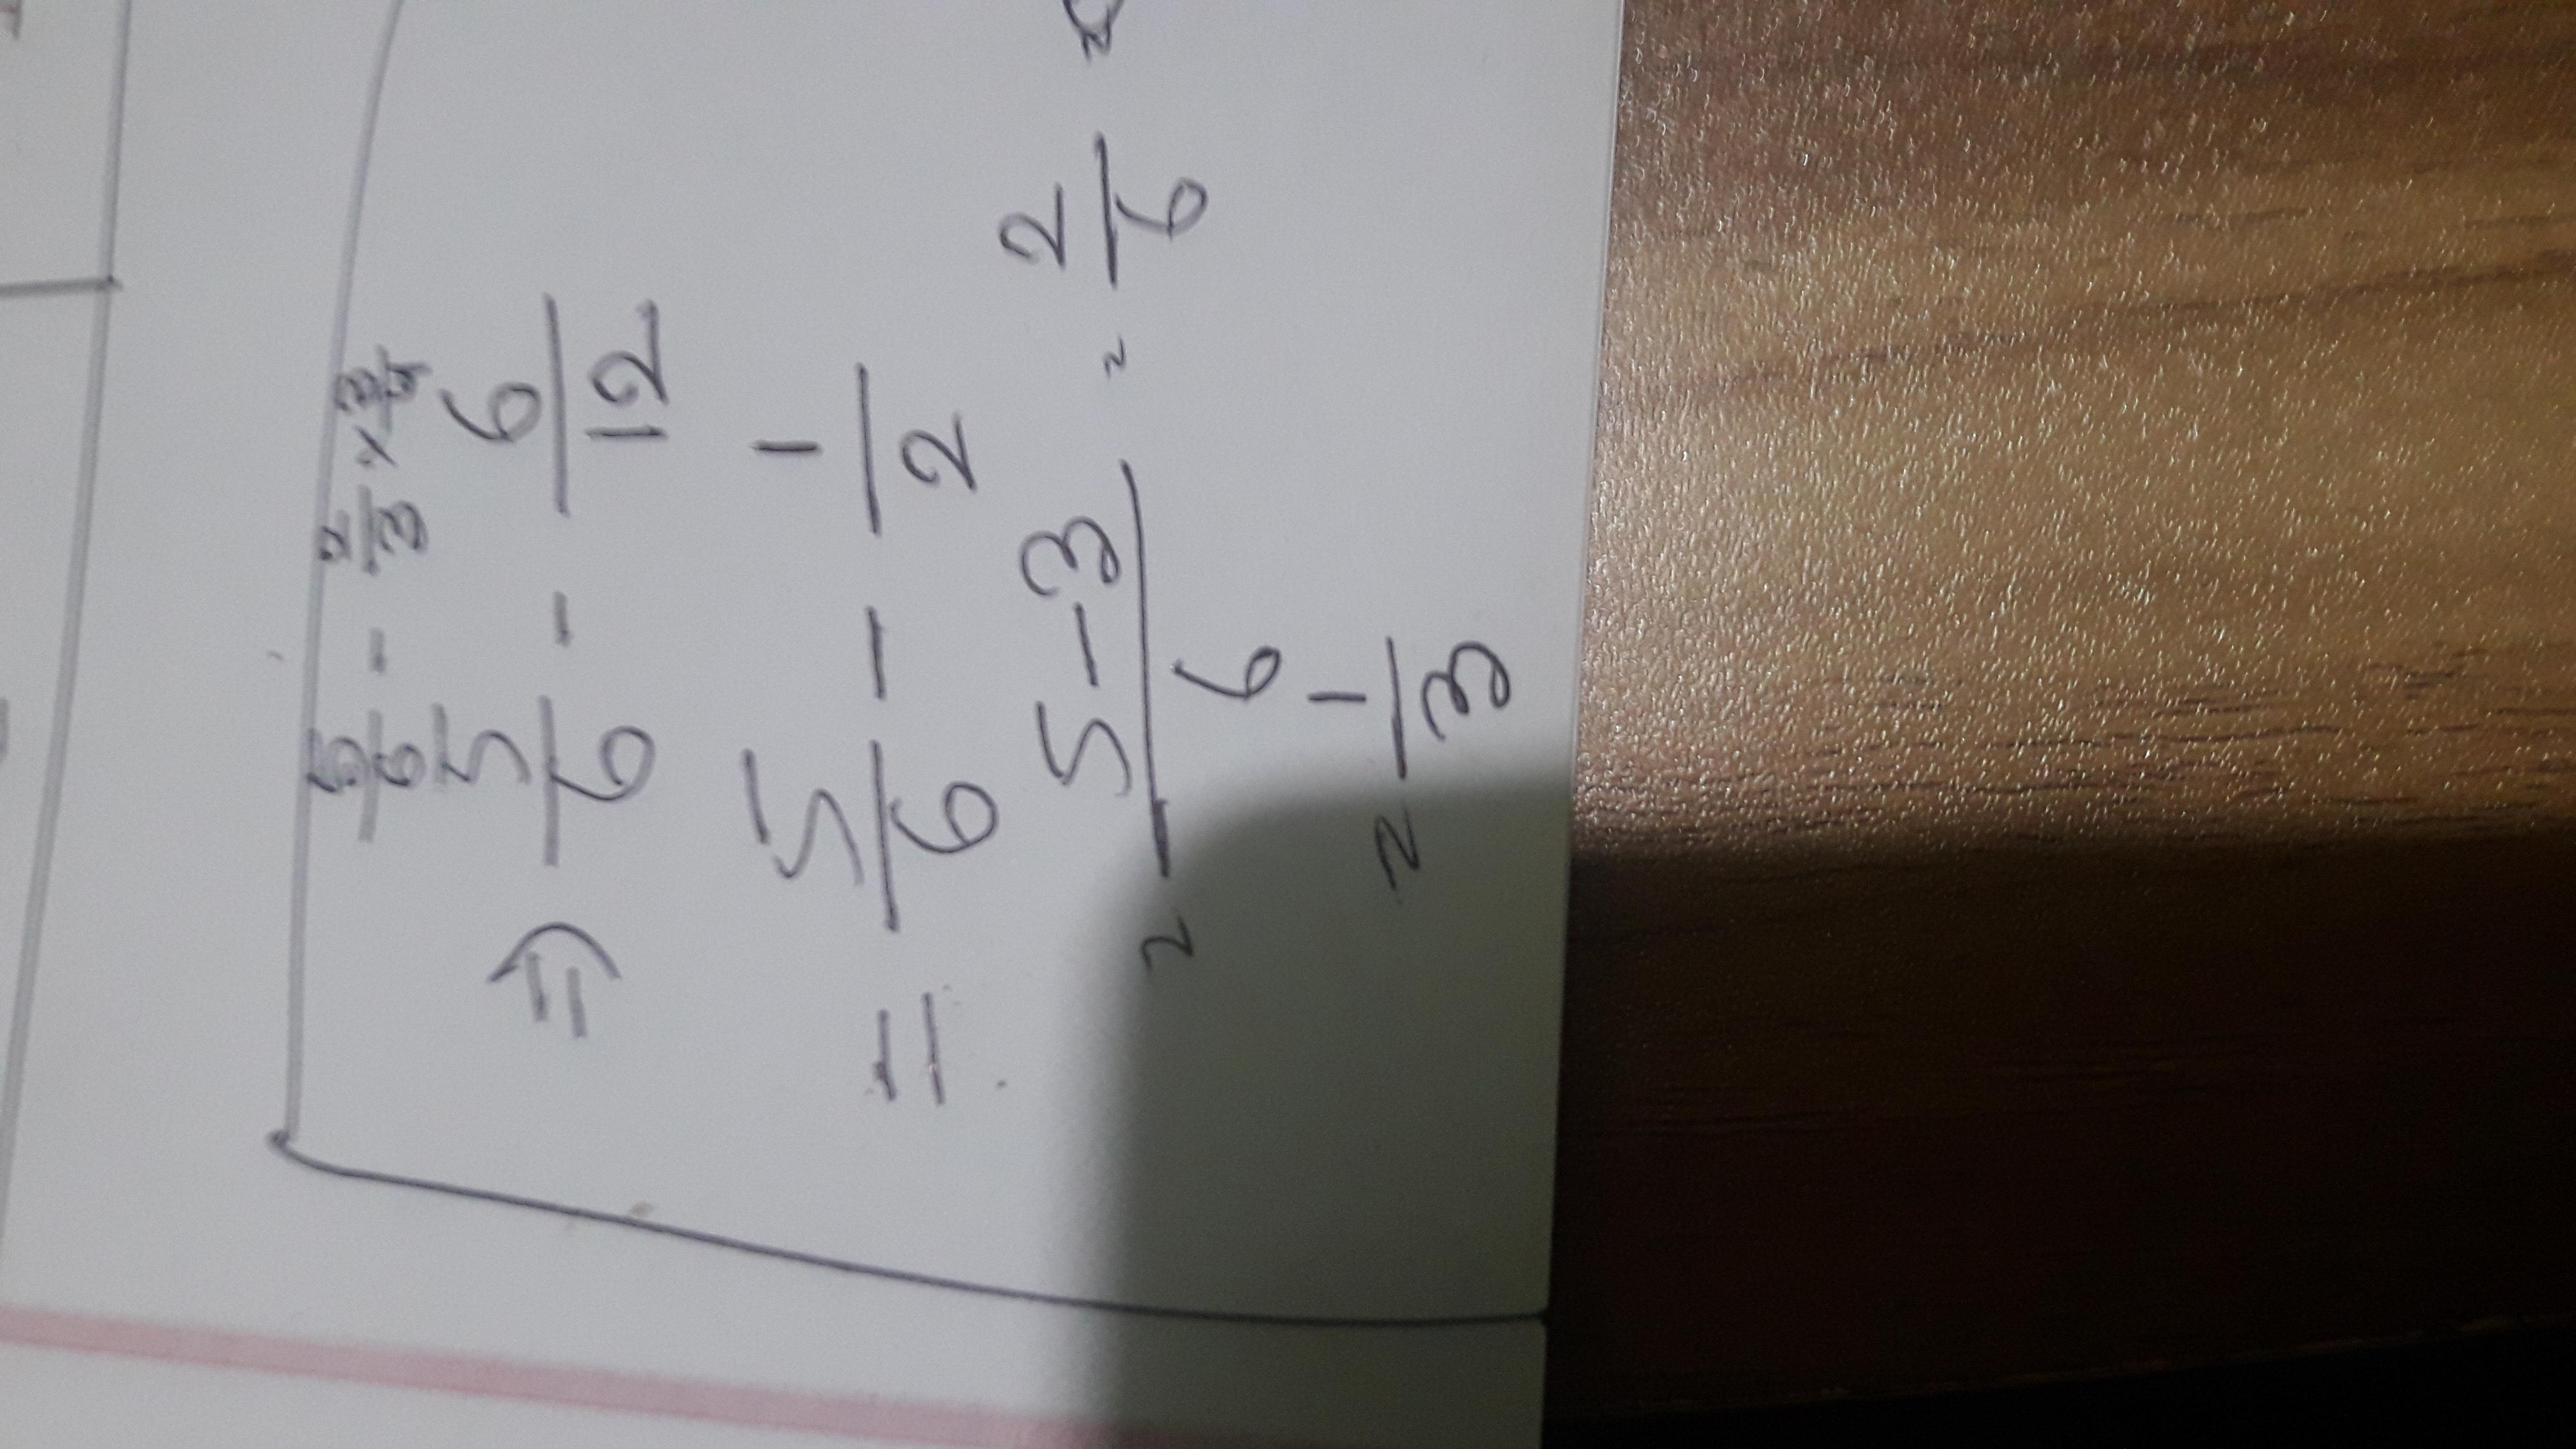 5/6 - 2/3 × 3/4
⇒ 5/6 - 6/12
= 5/6 - 1/2
= 5-3/6 = 2/6
= 1/3